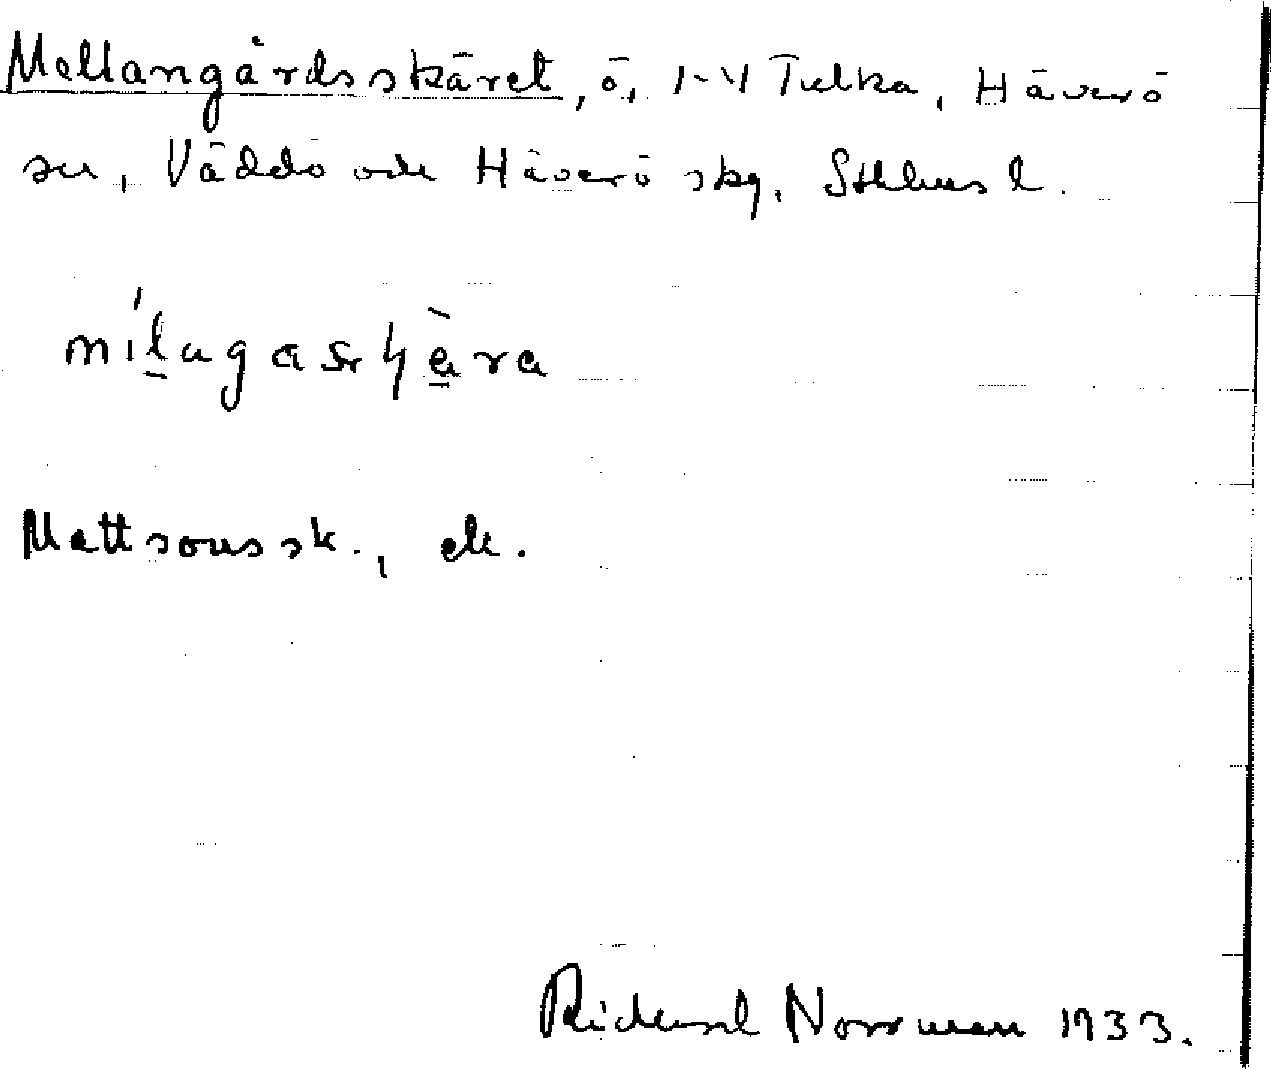 Mellangårdsskäret, ö, 1-4 Tulka, Häverö
sn, Väddö och Häverö skg, Sthlms l.
Mattsonssk.,
Rickard Norrman 1933.